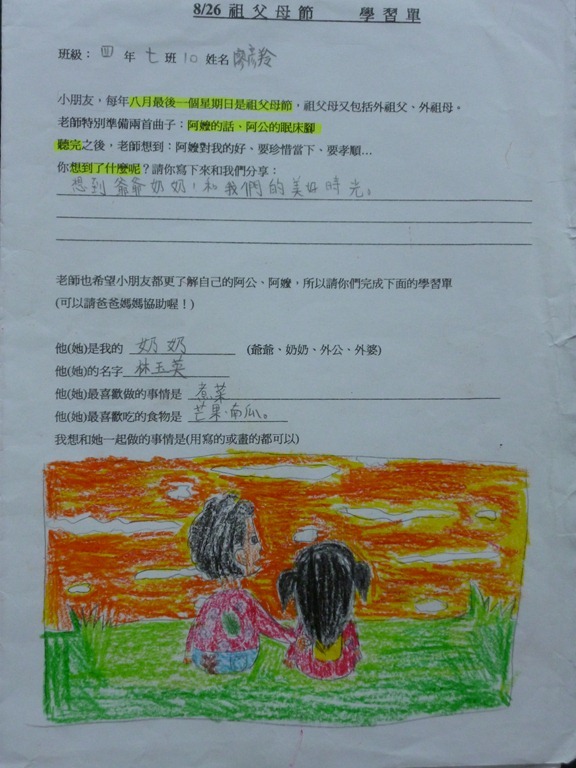 8/26 祖父母節 學習單
班級：四年七班10姓名廖彥羚
小朋友，每年八月最後一個星期日是祖父母節，祖父母又包括外祖父、外祖母。
老師特別準備兩首曲子：阿嬤的話、阿公的眠床腳
聽完之後，老師想到：阿嬤對我的好、要珍惜當下、要孝順…
你想到了什麼呢？請你寫下來和我們分享：
想到爺爺奶奶，和我們的美好時光。
老師也希望小朋友都更了解自己的阿公、阿嬤，所以請你們完成下面的學習單
(可以請爸爸媽媽協助喔！)
他(她)是我的 奶奶 (爺爺、奶奶、外公、外婆)
他(她)的名字 林玉英
他(她)最喜歡做的事情是 煮菜
他(她)最喜歡吃的食物是 芒果、南瓜。
我想和她一起做的事情是(用寫的或畫的都可以)